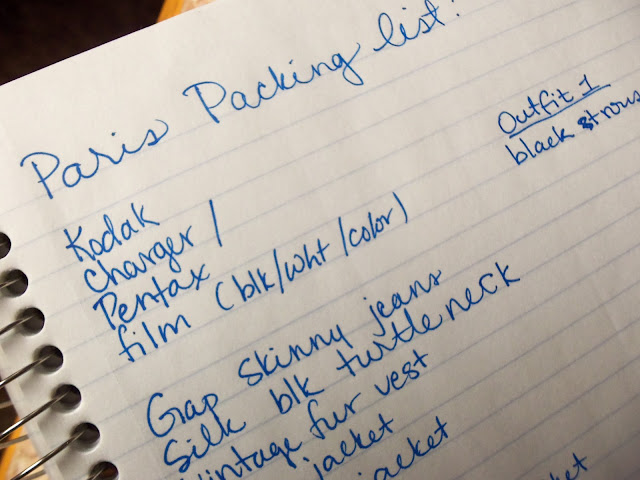 Paris Packing list:
Kodak
charger /
Pentax
film (blk/wht/color)
Gap skinny jeans
Silk blk turtleneck
Vintage fur vest
jacket
jacket
Outfit 1
black